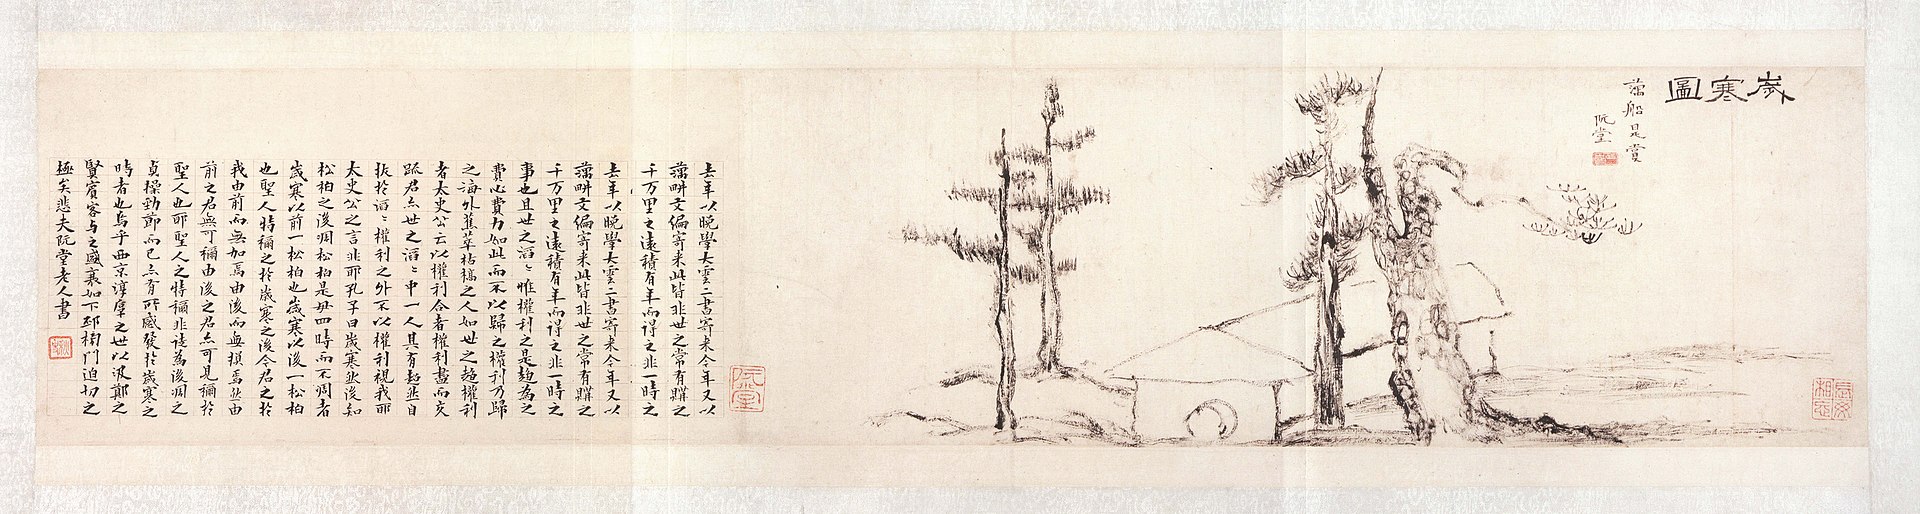 歲寒圖
藕船是賞
阮堂
正喜
長毋相忘
阮堂
去年以晚學大雲二書寄来今年又以
藕畊文編寄来此皆非世之常有購之
千万里之遠積有年而得之非一時之
去年以晚學大雲二書寄来今年又以
藕畊文編寄来此皆非世之常有購之
千万里之遠積有年而得之非一時之
事也且世之滔〻惟權利之是趨為之
費心費力如此而不以歸之權利乃歸
之海外蕉萃枯槁之人如世之趨權利
者太史公云以權利合者權利盡而交
踈君亦世之滔〻中一人其有超然自
拔於滔〻權利之外不以權利視我耶
太史公之言非耶孔子曰歲寒然後知
松柏之後凋松柏是毋四時而不凋者
歲寒以前一松柏也歲寒以後一松柏
也聖人特稱之於歲寒之後今君之於
我由前而無加焉由後而無損焉然由
前之君無可稱由後之君亦可見稱於
聖人也耶聖人之特稱非徒為後凋之
貞操勁節而已亦有所感發於歲寒之
時者也烏乎西京淳厚之世以汲鄭之
賢賓客与之盛衰如下邳榜門迫切之
極矣悲夫阮堂老人書
秋史